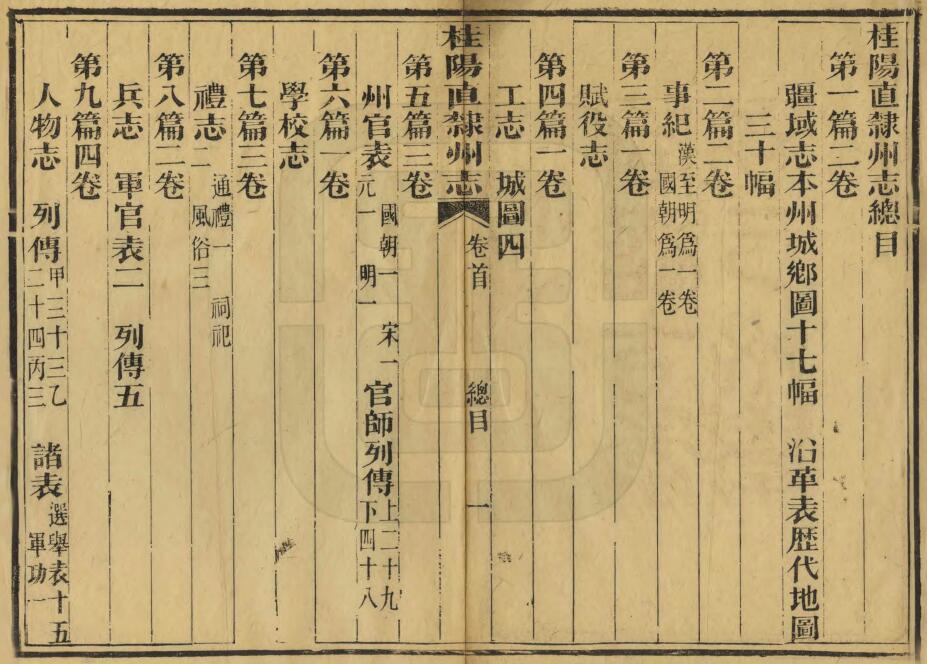 桂陽直隸州志總目
第一篇二卷
疆域志本州城鄕圖十七幅　沿革表歷代地圖
三十幅
第二篇二卷
事紀漢至明爲一卷
國朝爲一卷
第三篇一卷
賦役志
第四篇一卷
工志　城圖四
桂陽直隸州志　卷首　總目　一
第五篇三卷
州官表國朝一　宋一
元一　明一
官師列傳上二十九
下四十八
第六篇一卷
學校志
第七篇三卷
禮志二　通禮一　祠祀
風俗三
第八篇二卷
兵志　軍官表二　列傳五
第九篇四卷
人物志　列傳甲三十三乙
二十四丙三
諸表選舉表十五
軍功一